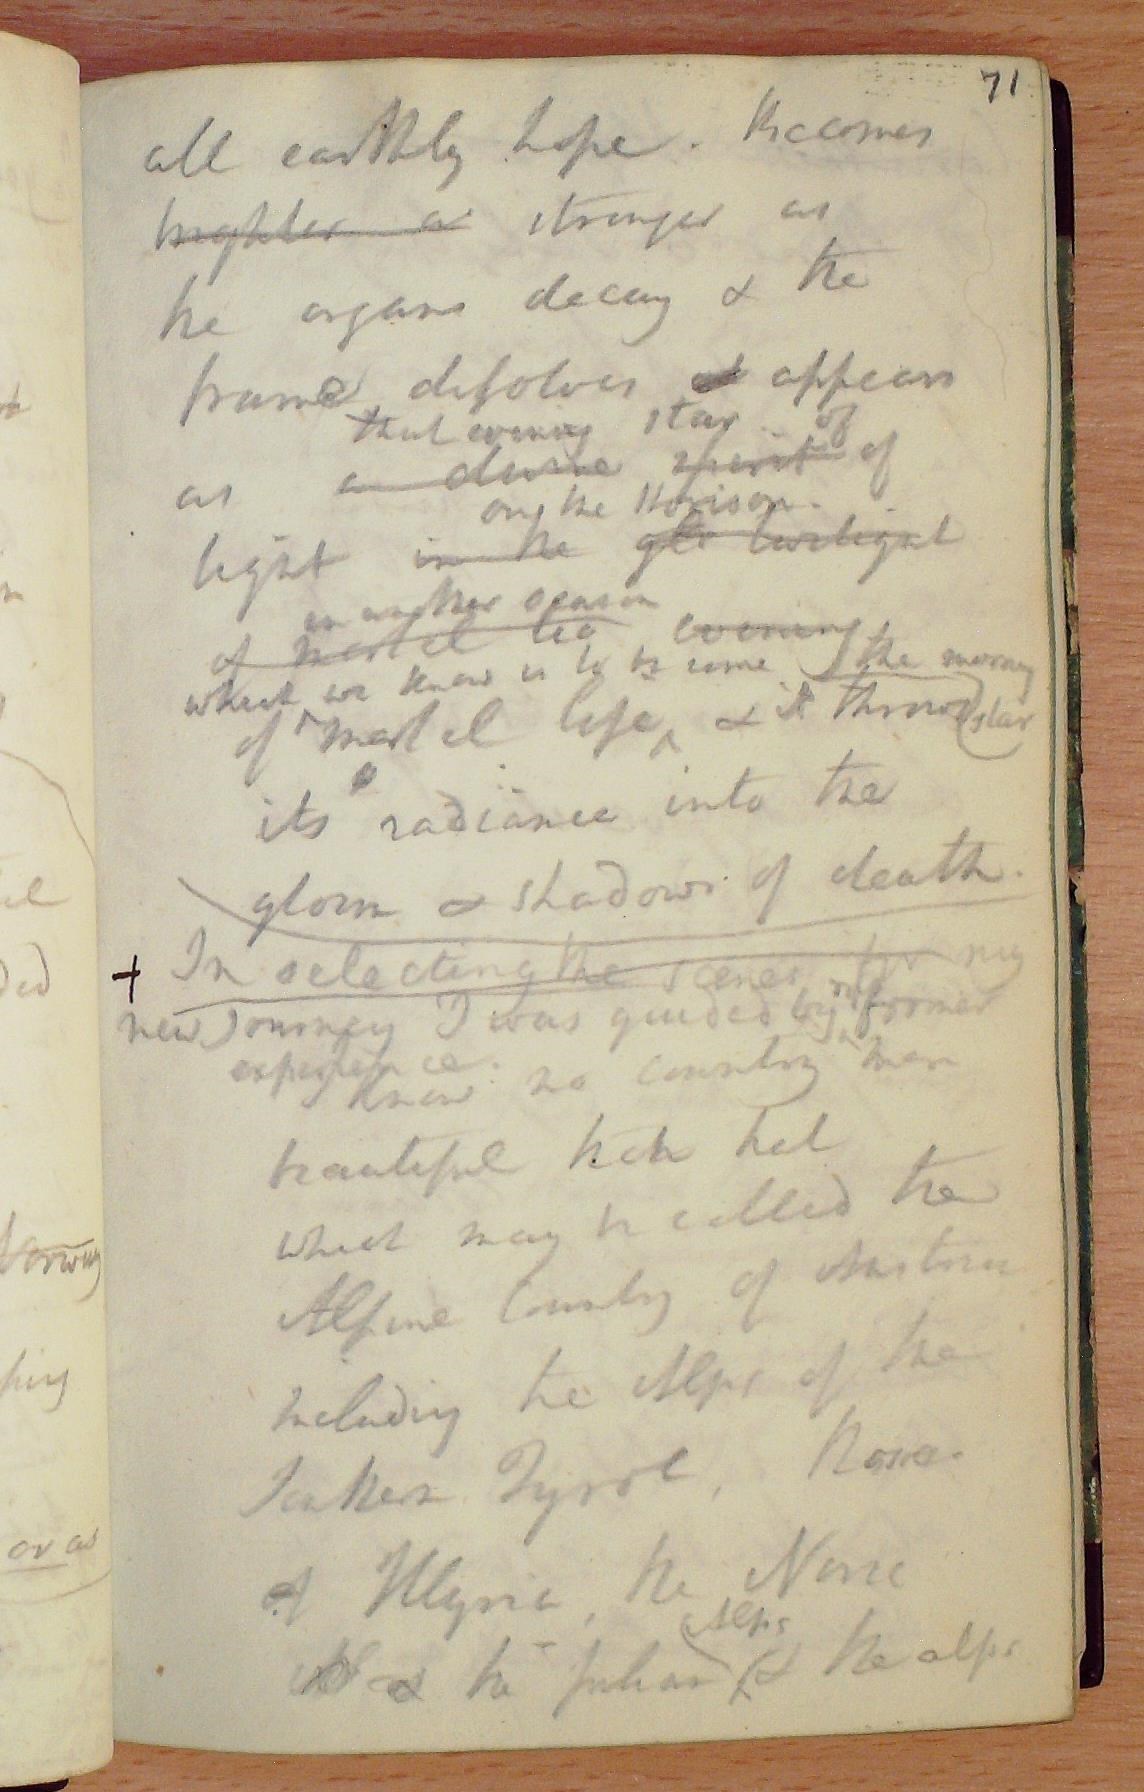 71
all earthly hope. Becomes
brighter as stronger as
the organs decay & the
frame dissolves & appears
that evening star of
as a divine spirit of
on the Horison.
light in the glo twilight
in another season
of mortal evening
which we know is to be come the morning
of mortal life, & it throws star
its radiance into the
gloom & shadows of death.
+ In selecting the scenes for my
new Journey I was guided by my former
experience.
know no country more
beautiful than that
which may be called the
Alpine Country of Austria
including the Alps of the
Southern Tyrol, those
of Illyria, the Noric
Alps
& the Julian & the alps
ded
or as